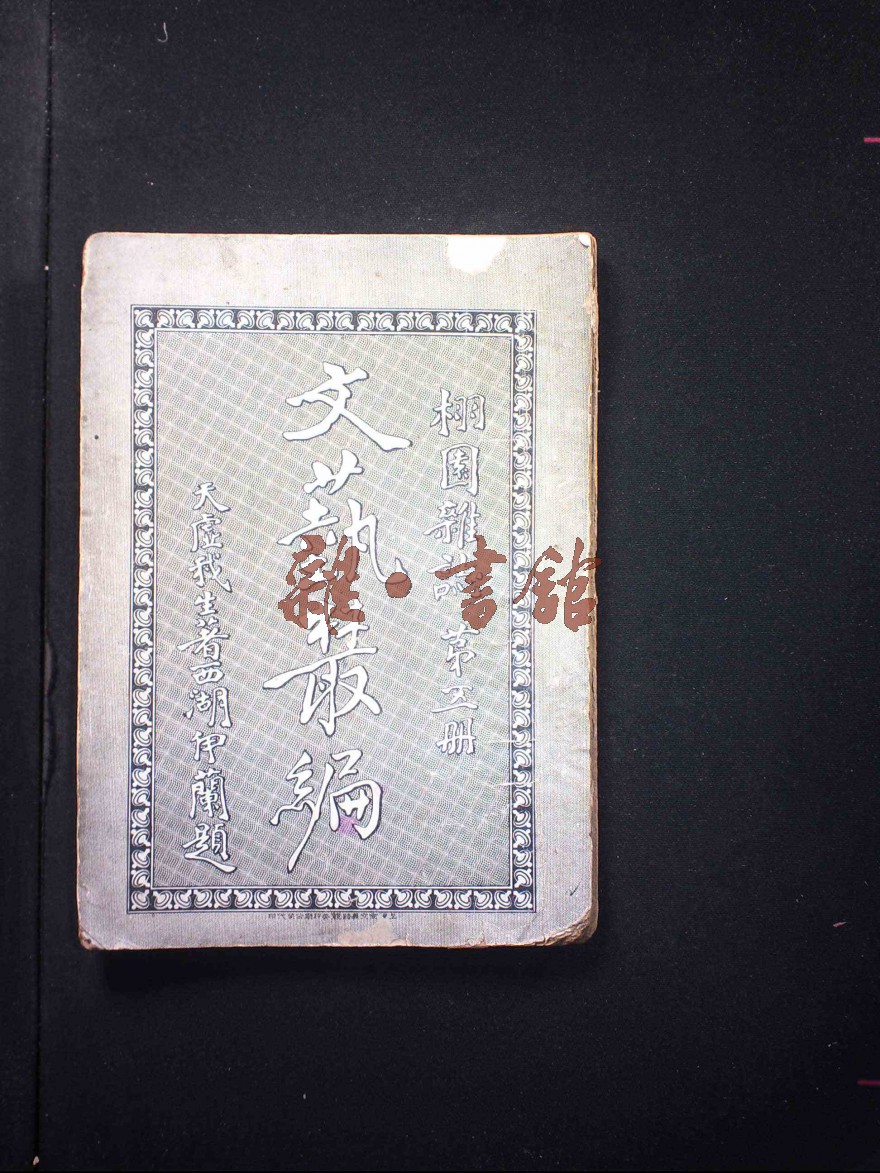 栩園雜誌 第五册
文藝叢編
天虛我生著西湖伊蘭題
雜·書館